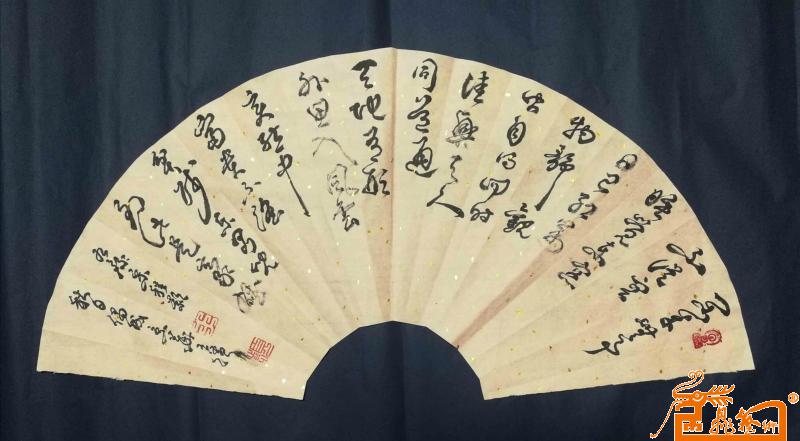 闲来无事
不從容
睡覺東窗
日已紅萬
物静觀
皆自得四时
佳興與人
同道通
天地有形
外思入風雲
变態中
富貴不淫
貧賤樂男兒
到此是豪雄
秋日偶成